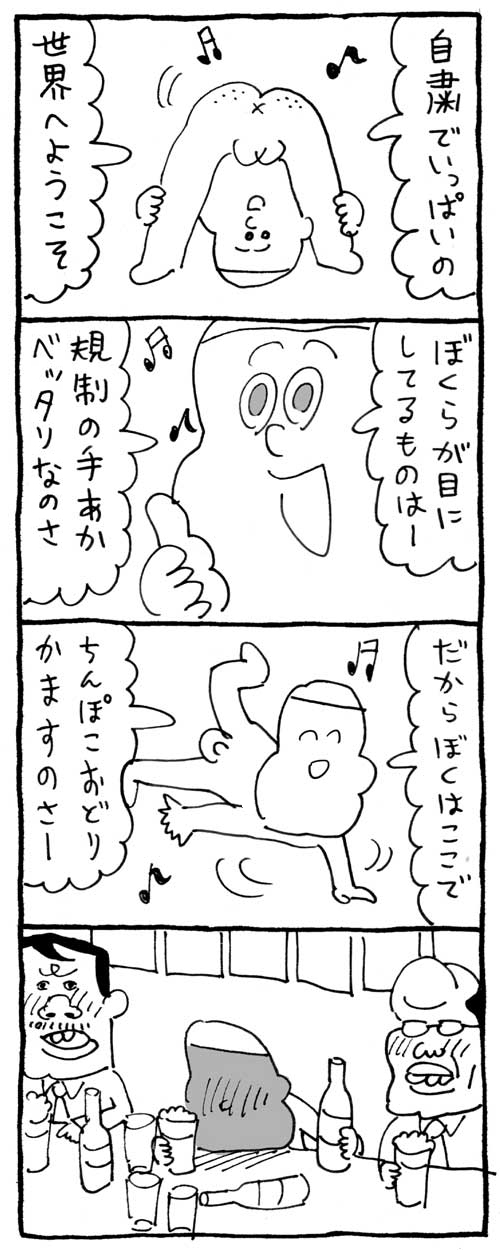 自粛でいっぱいの
世界へようこそ
ぼくらが目に
してるものはー
規制の手あか
ベッタリなのさ
だからぼくはここで
ちんぽこおどり
かますのさー